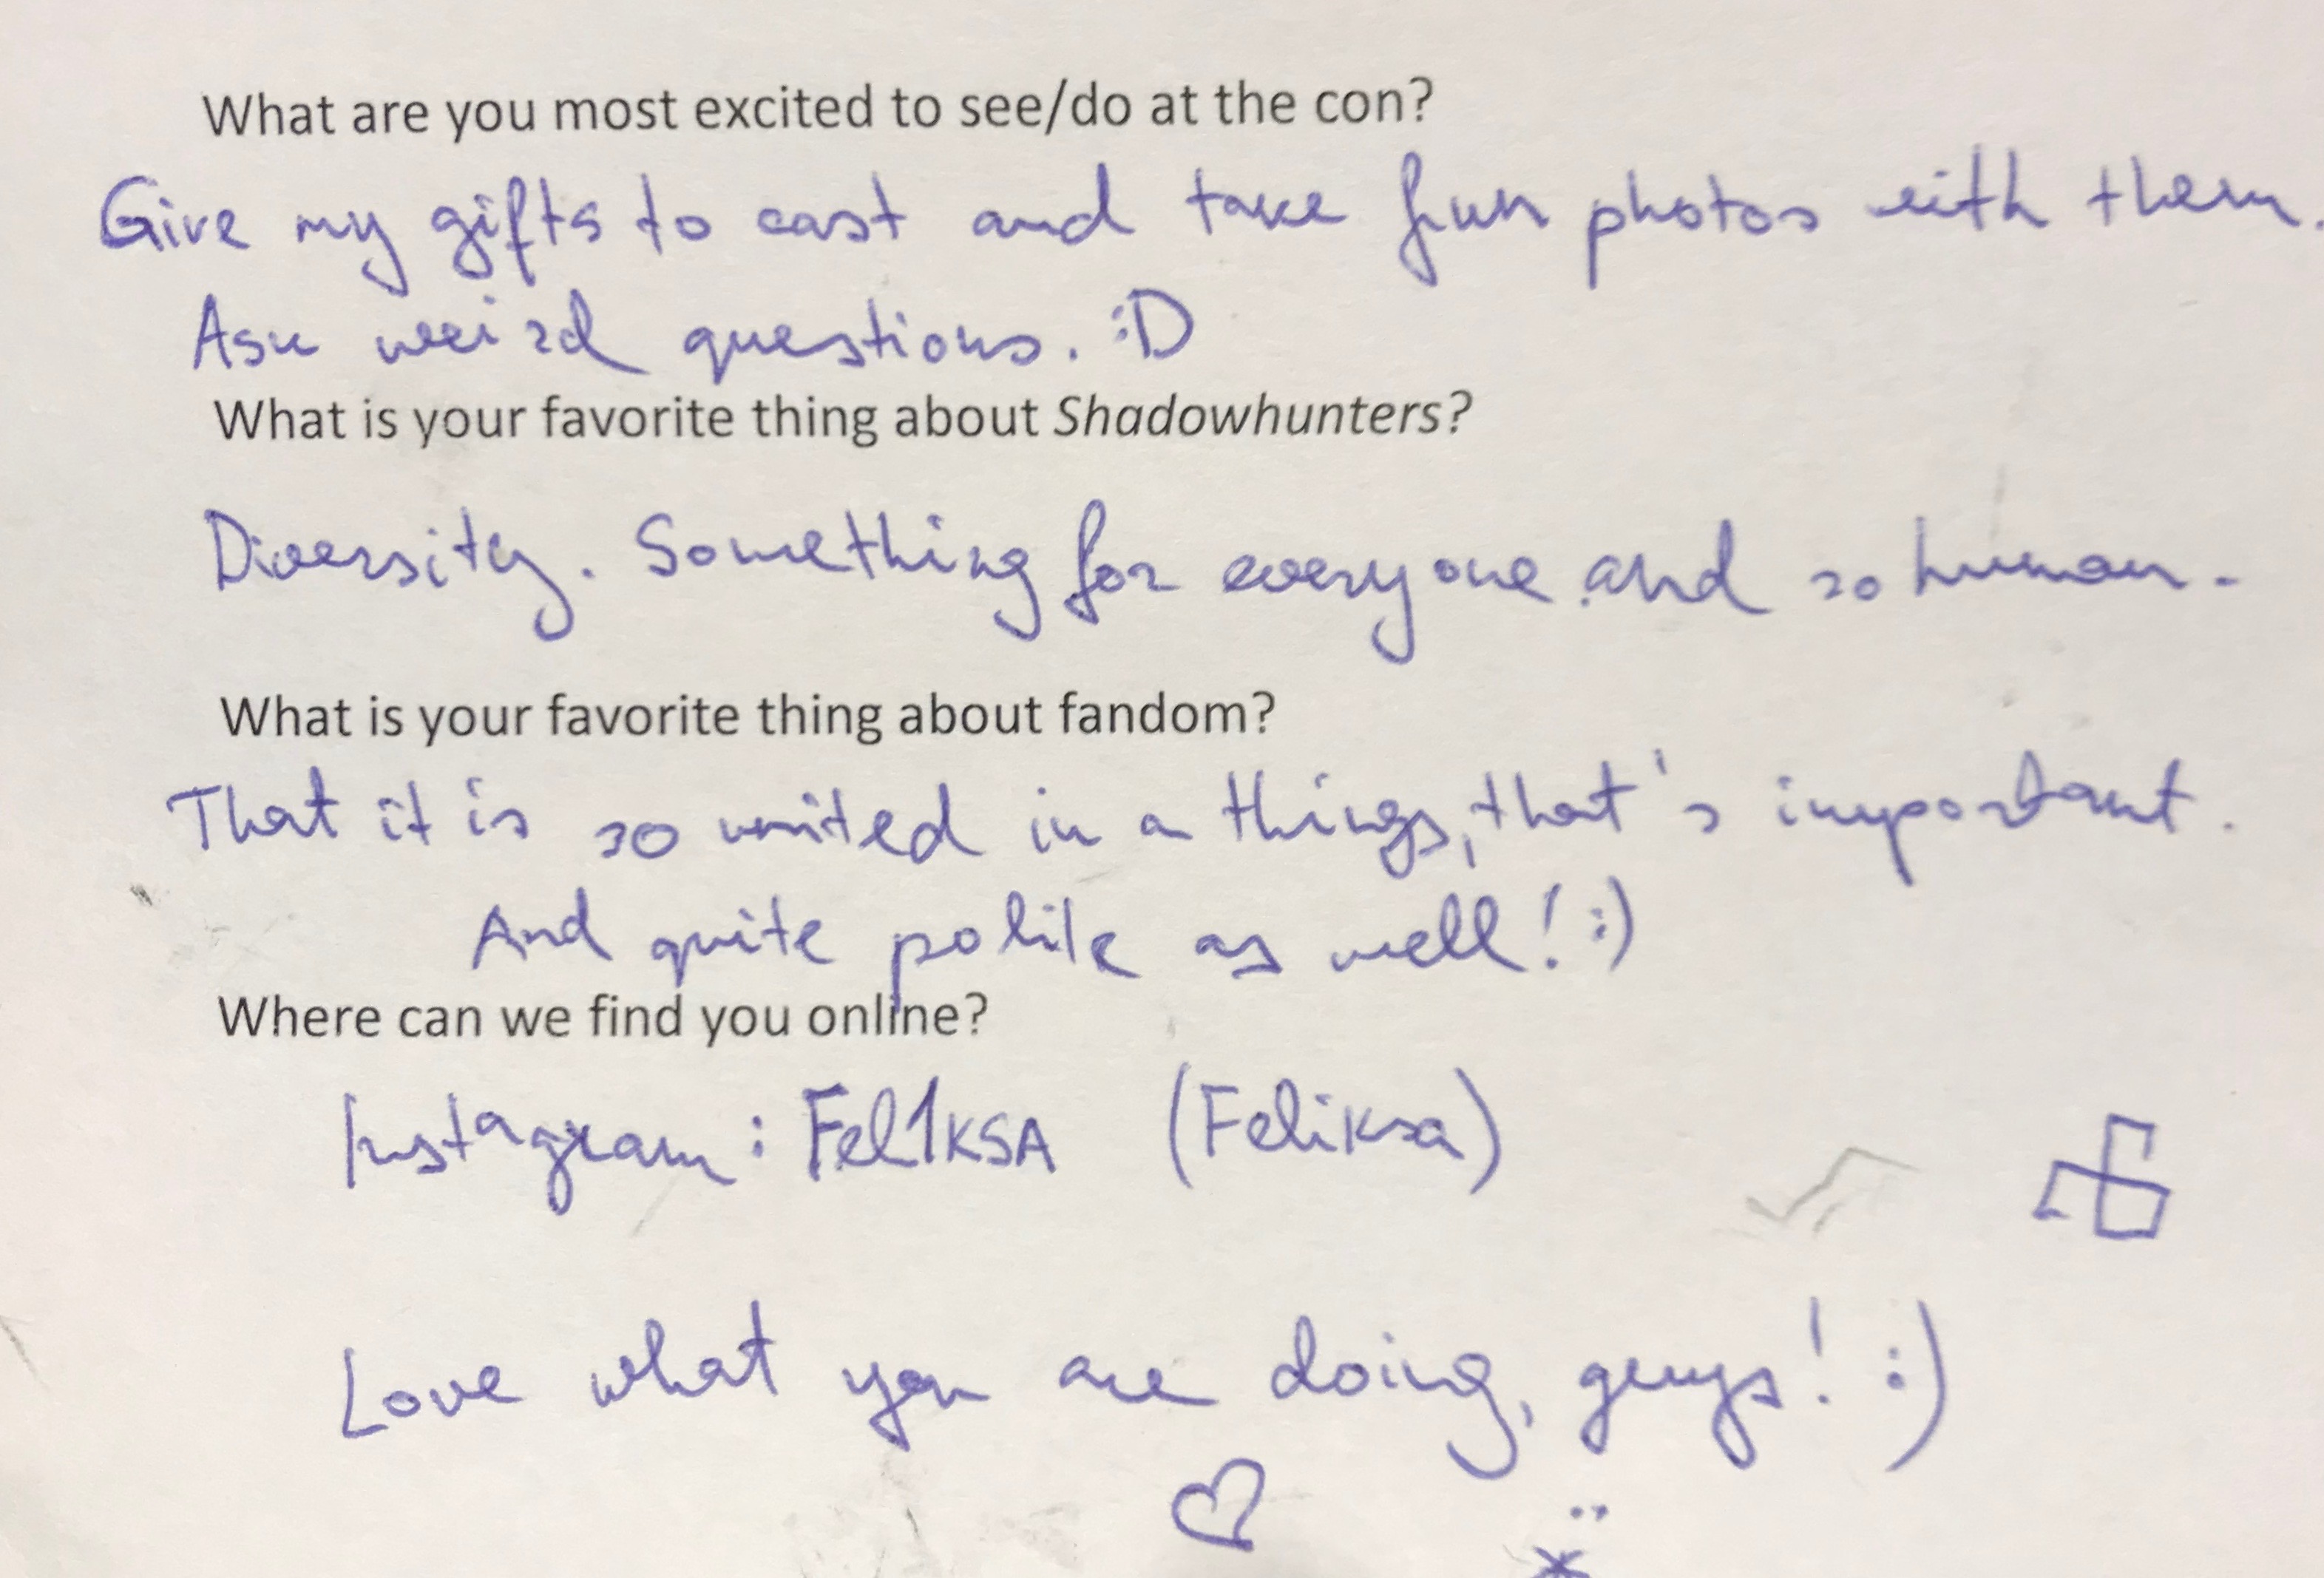 What are you most excited to see/do at the con?
Give my gifts to cast and take fun photos with them.
Ask weird questions. :D
What is your favorite thing about Shadowhunters?
Diversity. Something for everyone and so human.
What is your favorite thing about fandom?
That it is so united in a things, that's important.
And quite polite as well! :)
Where can we find you online?
Instagram: Fel1KSA (Feliksa)
Love what you are doing, guys! :)